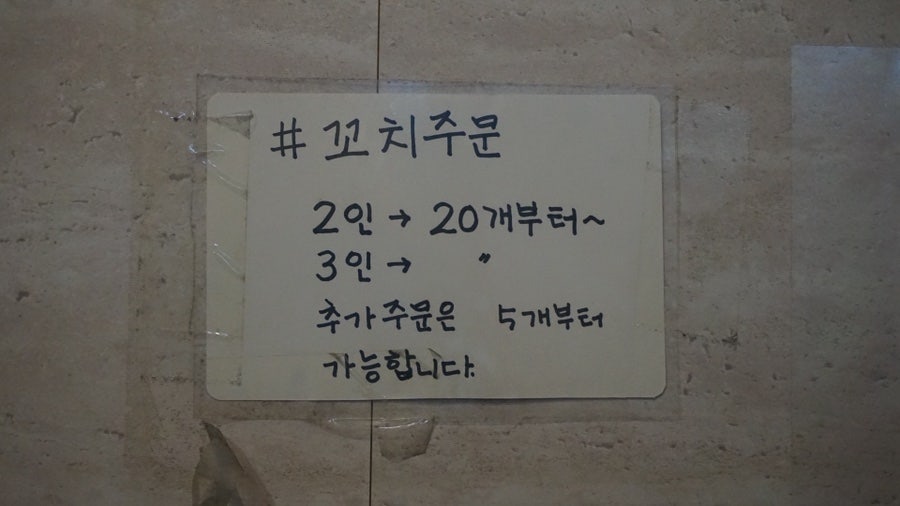 # 꼬치주문
2인 → 20개부터~
3인 → 〃
추가주문은 5개부터
가능합니다.